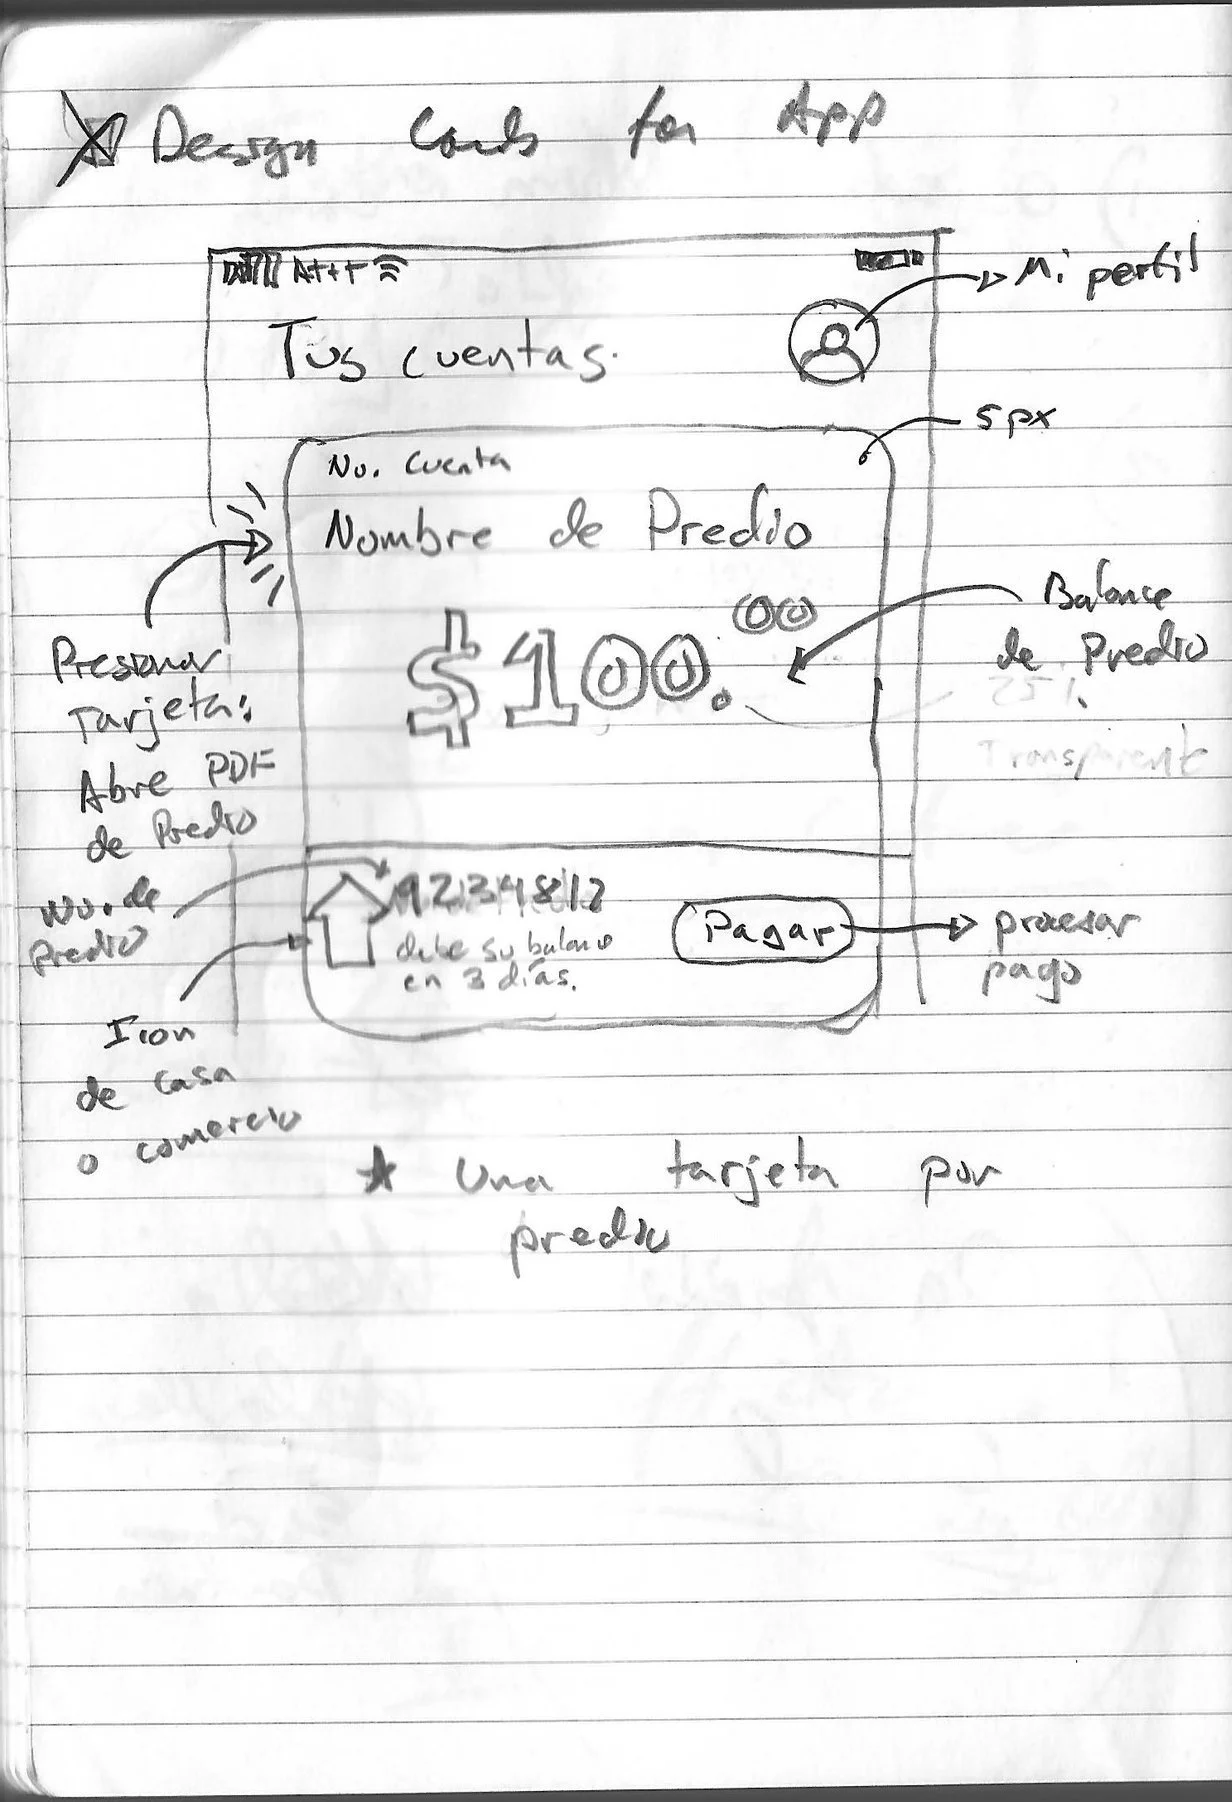 Design Cards for App
A+++
Mi perfil
Tus cuentas.
5px
No. Cuenta
Nombre de Predio
$100.00
Balance
de Predio
25%
Transparente
Presionar
Tarjeta:
Abre PDF
de Predio
No. de
Predio
92234812
debe su balance
en 3 días.
Pagar
procesar
pago
Icon
de casa
o comercio
★ Una tarjeta por
predio